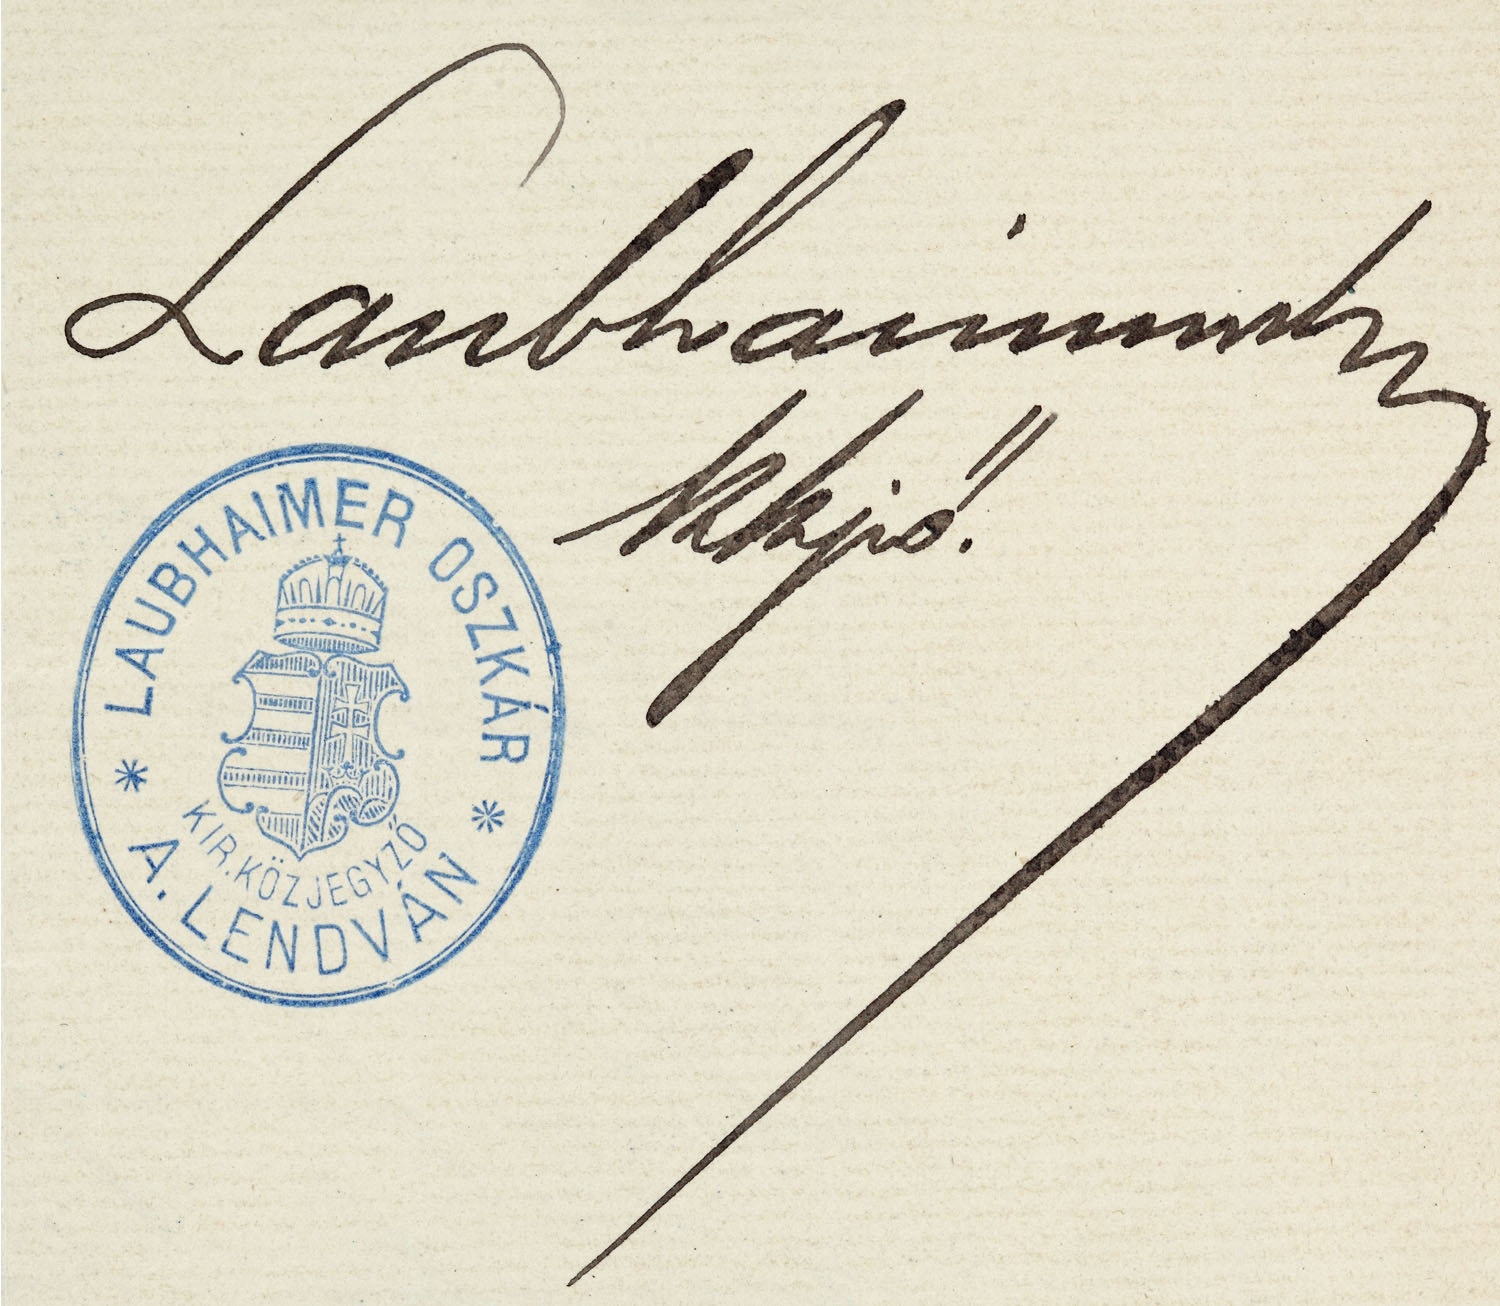 Laubhaimer
kkjző!
* LAUBHAIMER OSZKÁR *
KIR. KÖZJEGYZŐ
A. LENDVÁN